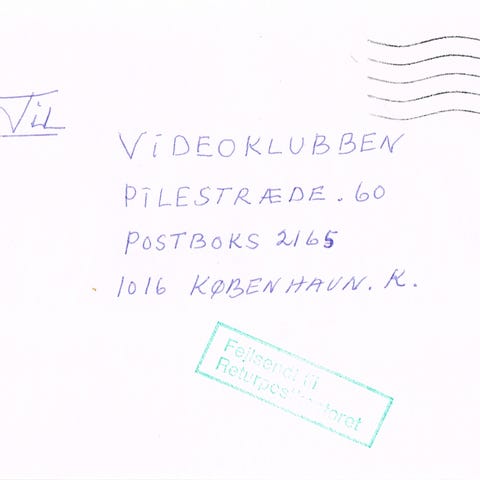 Til
VIDEOKLUBBEN
PILESTRÆDE. 60
POSTBOKS 2165
1016 KØBENHAVN. K.
Fejlsendt til
Returpostkontoret